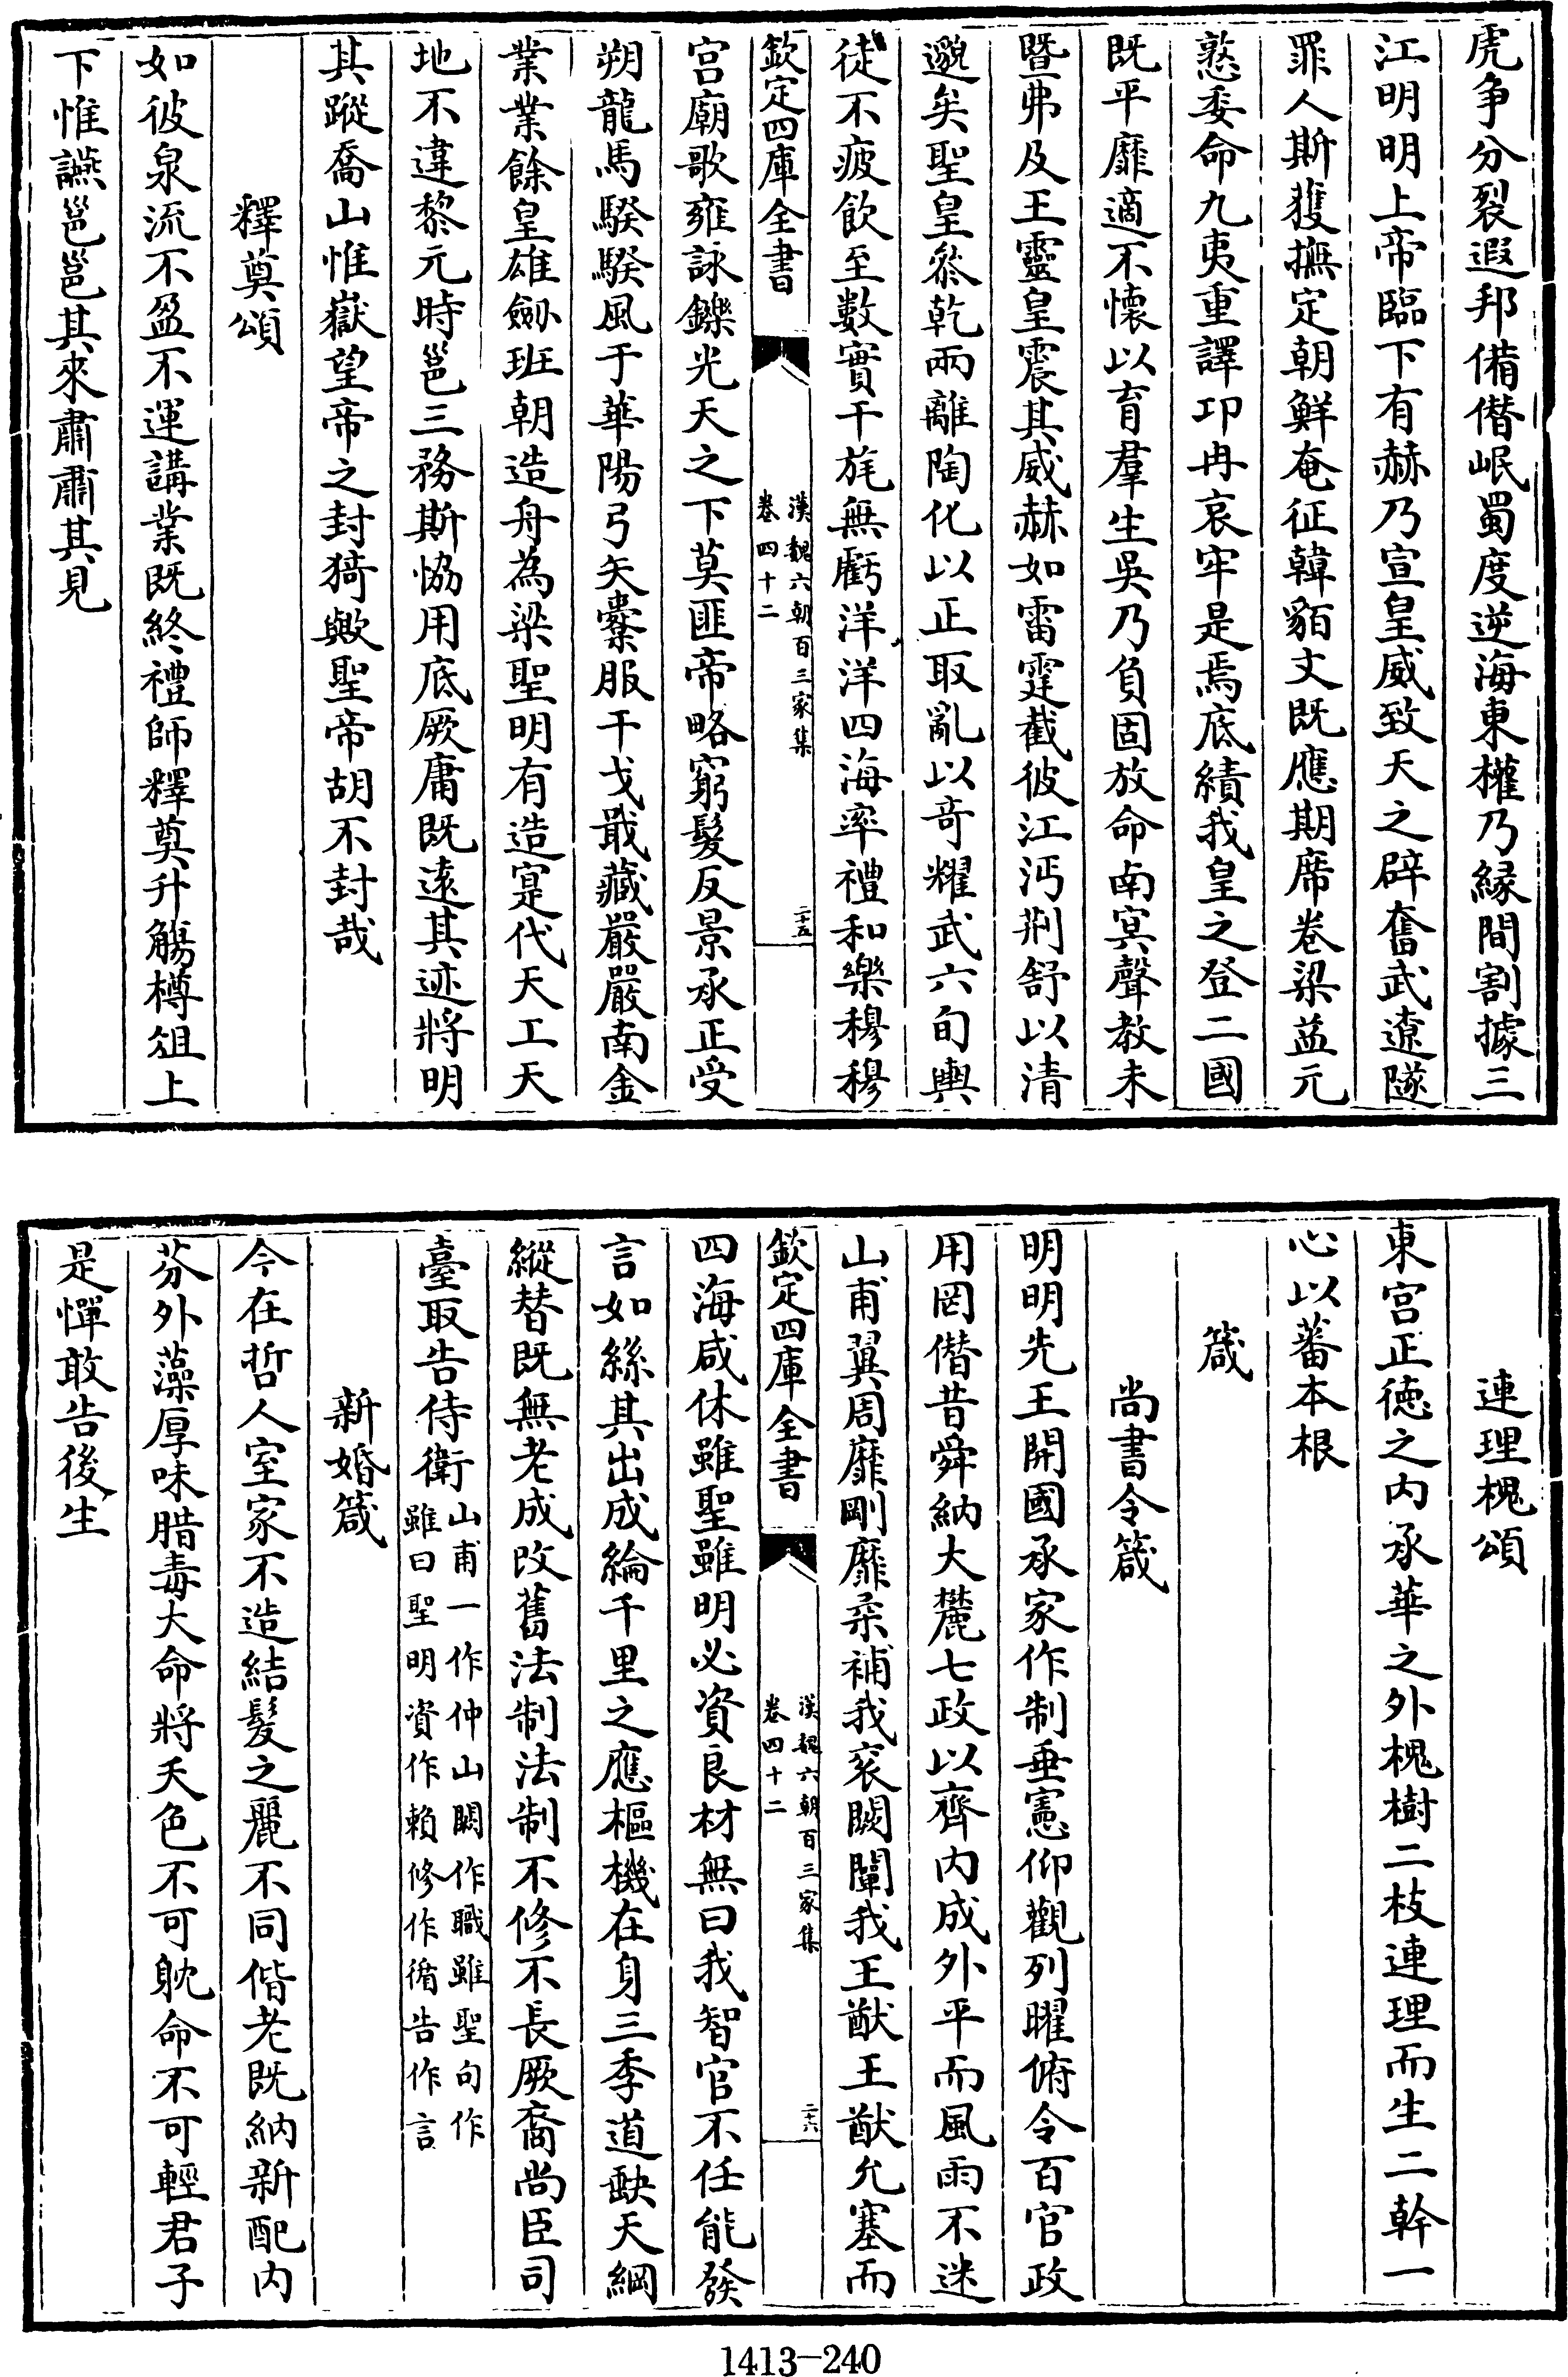 虎争分裂遐邦備僣岷蜀度逆海東權乃緣間割據三
江明明上帝臨下有赫乃宣皇威致天之辟奮武遼隧
罪人斯獲撫定朝鮮奄征韓貊文既應期席卷梁益元
憝委命九夷重譯邛冉哀牢是焉底績我皇之登二國
既平靡適不懷以育羣生吳乃負固放命南冥聲教未
暨弗及王靈皇震其威赫如雷霆截彼江沔荆舒以清
邈矣聖皇叅乾兩離陶化以正取亂以竒耀武六旬輿
徒不疲飲至數實干旄無虧洋洋四海率禮和樂穆穆
欽定四庫全書
漢魏六朝百三家集
卷四十二
二十五
宫廟歌雍詠鑠光天之下莫匪帝略窮髮反景承正受
朔龍馬騤騤風于華陽弓矢櫜服干戈戢藏嚴嚴南金
業業餘皇雄劒班朝造舟為梁聖明有造寔代天工天
地不違黎元時邕三務斯恊用底厥庸既逺其迹將明
其蹤喬山惟嶽望帝之封猗歟聖帝胡不封哉
釋奠頌
如彼泉流不盈不運講業既終禮師釋奠升觴樽俎上
下惟讌邕邕其來肅肅其見
連理槐頌
東宫正徳之内承華之外槐樹二枝連理而生二幹一
心以蕃本根
箴
尚書令箴
明明先王開國承家作制垂憲仰觀列曜俯令百官政
用罔僣昔舜納大麓七政以齊内成外平而風雨不迷
山甫翼周靡剛靡柔補我衮闕闡我王猷王猷允塞而
欽定四庫全書
漢魏六朝百三家集
卷四十二
二十六
四海咸休雖聖雖明必資良材無曰我智官不任能發
言如絲其出成綸千里之應樞機在身三季道缺天綱
縱替既無老成改舊法制法制不修不長厥裔尚臣司
臺取告侍衛
山甫一作仲山闕作職雖聖句作
雖曰聖明資作賴修作循告作言
新婚箴
今在哲人室家不造結髮之麗不同偕老既納新配内
芬外藻厚味腊毒大命將夭色不可躭命不可輕君子
是憚敢告後生
1413—240